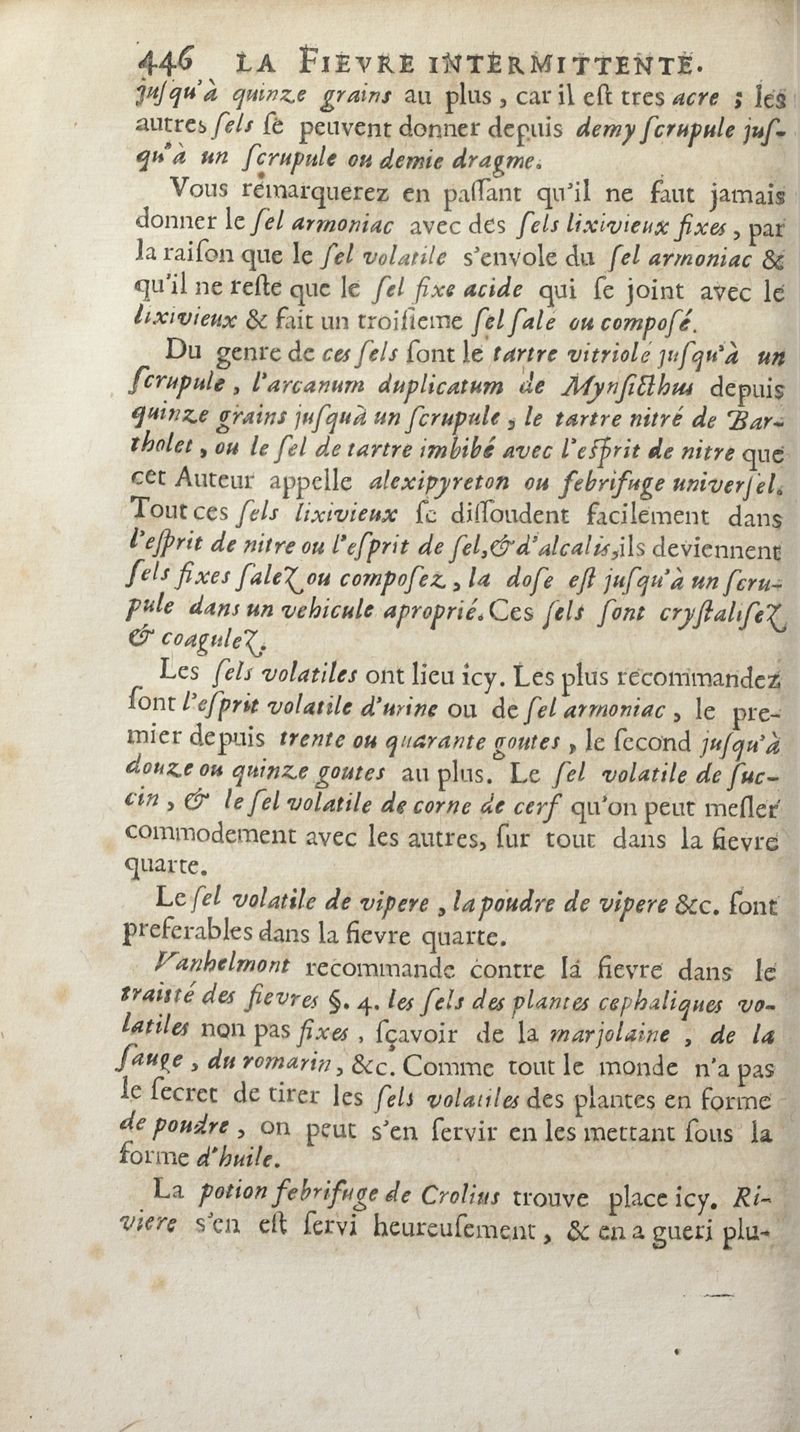 446 LA FIÉVRE INTERMITTENTE.
juſqu'à quinze grains au plus, car il eſt tres acre ; les
autres ſels ſe peuvent donner depuis demy ſcrupule juſ-
qu'à un ſcrupule ou demie dragme.
Vous remarquerez en paſſant qu'il ne faut jamais
donner le ſel armoniac avec des ſels lixivieux fixes, par
la raiſon que le ſel volatile s'envole du ſel armoniac &
qu'il ne reſte que le ſel fixe acide qui ſe joint avec le
lixivieux & fait un troiſieme ſel ſale ou compoſé.
Du genre de ces ſels ſont le tartre vitriolé juſqu'à un
ſcrupule, l'arcanum duplicatum de Mynſicthus depuis
quinze grains juſqu'à un ſcrupule, le tartre nitré de Bar-
tholet, ou le ſel de tartre imbibé avec l'eſprit de nitre que
cet Auteur appelle alexipyreton ou febrifuge univerſel.
Tout ces ſels lixivieux ſe diſſoudent facilement dans
l'eſprit de nitre ou l'eſprit de ſel, & d'alcalis, ils deviennent
ſels fixes ſalez ou compoſez, la doſe eſt juſqu'à un ſcru-
pule dans un vehicule aproprié. Ces ſels ſont cryſtaliſez
& coagulez.
Les ſels volatiles ont lieu icy. Les plus recommandez
ſont l'eſprit volatile d'urine ou de ſel armoniac, le pre-
mier depuis trente ou quarante goutes, le ſecond juſqu'à
douze ou quinze goutes au plus. Le ſel volatile de ſuc-
cin, & le ſel volatile de corne de cerf qu'on peut meſler
commodement avec les autres, ſur tout dans la fievre
quarte.
Le ſel volatile de vipere, la poudre de vipere &c. ſont
preferables dans la fievre quarte.
Vanhelmont recommande contre la fievre dans le
traitté des fievres §. 4. les ſels des plantes cephaliques vo-
latiles non pas fixes, ſçavoir de la marjolaine, de la
ſauge, du romarin, &c. Comme tout le monde n'a pas
le ſecret de tirer les ſels volatiles des plantes en forme
de poudre, on peut s'en ſervir en les mettant ſous la
forme d'huile.
La potion febrifuge de Crolius trouve place icy. Ri-
viere s'en eſt ſervi heureuſement, & en a gueri plu-